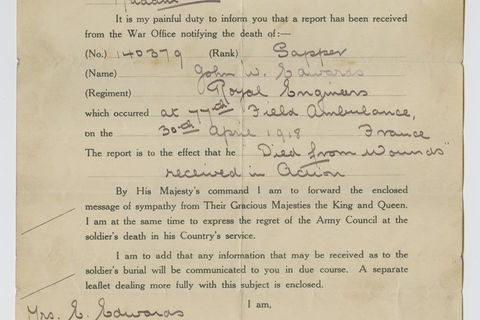 Madam
It is my painful duty to inform you that a report has been received
from the War Office notifying the death of:—
(No.) 140379 (Rank) Sapper
(Name) John W. Edwards
(Regiment) Royal Engineers
which occurred at 77th Field Ambulance,
on the 30th April 1918 France
The report is to the effect that he "Died from Wounds"
received in Action
By His Majesty's command I am to forward the enclosed
message of sympathy from Their Gracious Majesties the King and Queen.
I am at the same time to express the regret of the Army Council at the
soldier's death in his Country's service.
I am to add that any information that may be received as to the
soldier's burial will be communicated to you in due course. A separate
leaflet dealing more fully with this subject is enclosed.
I am,
Mrs. E. Edwards